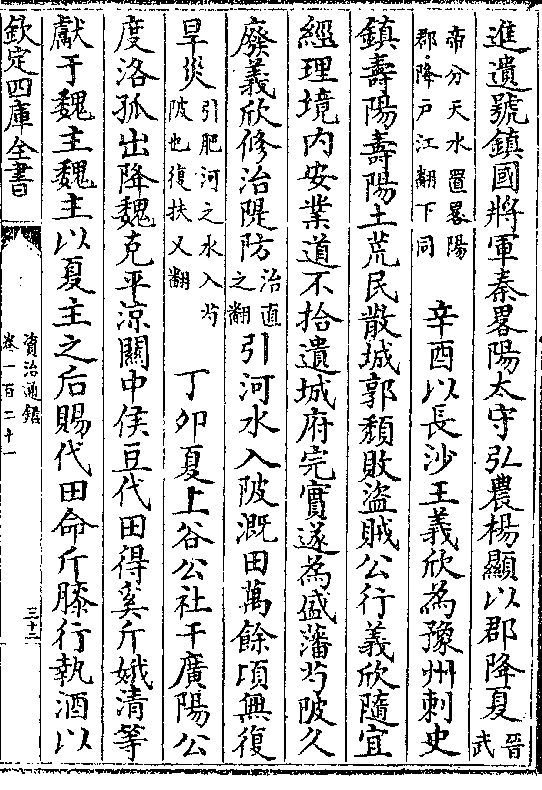 進遺號鎮國將軍秦畧陽太守弘農楊顯以郡降夏晉武
帝分天水置畧陽郡降户江翻下同 辛酉以長沙王義欣為豫州刺史
鎮壽陽壽陽土荒民散城郭頽敗盜賊公行義欣隨宜
經理境内安業道不拾遺城府完實遂為盛藩芍陂久
廢義欣修治隄防治直之翻引河水入陂溉田萬餘頃無復
旱災引肥河之水入芍陂也復扶又翻 丁卯夏上谷公社干廣陽公
度洛孤出降魏克平涼關中侯豆代田得奚斤娥清等
獻于魏主魏主以夏主之后賜代田命斤膝行執酒以
欽定四庫全書
資治通鑑
卷一百二十一
三十二